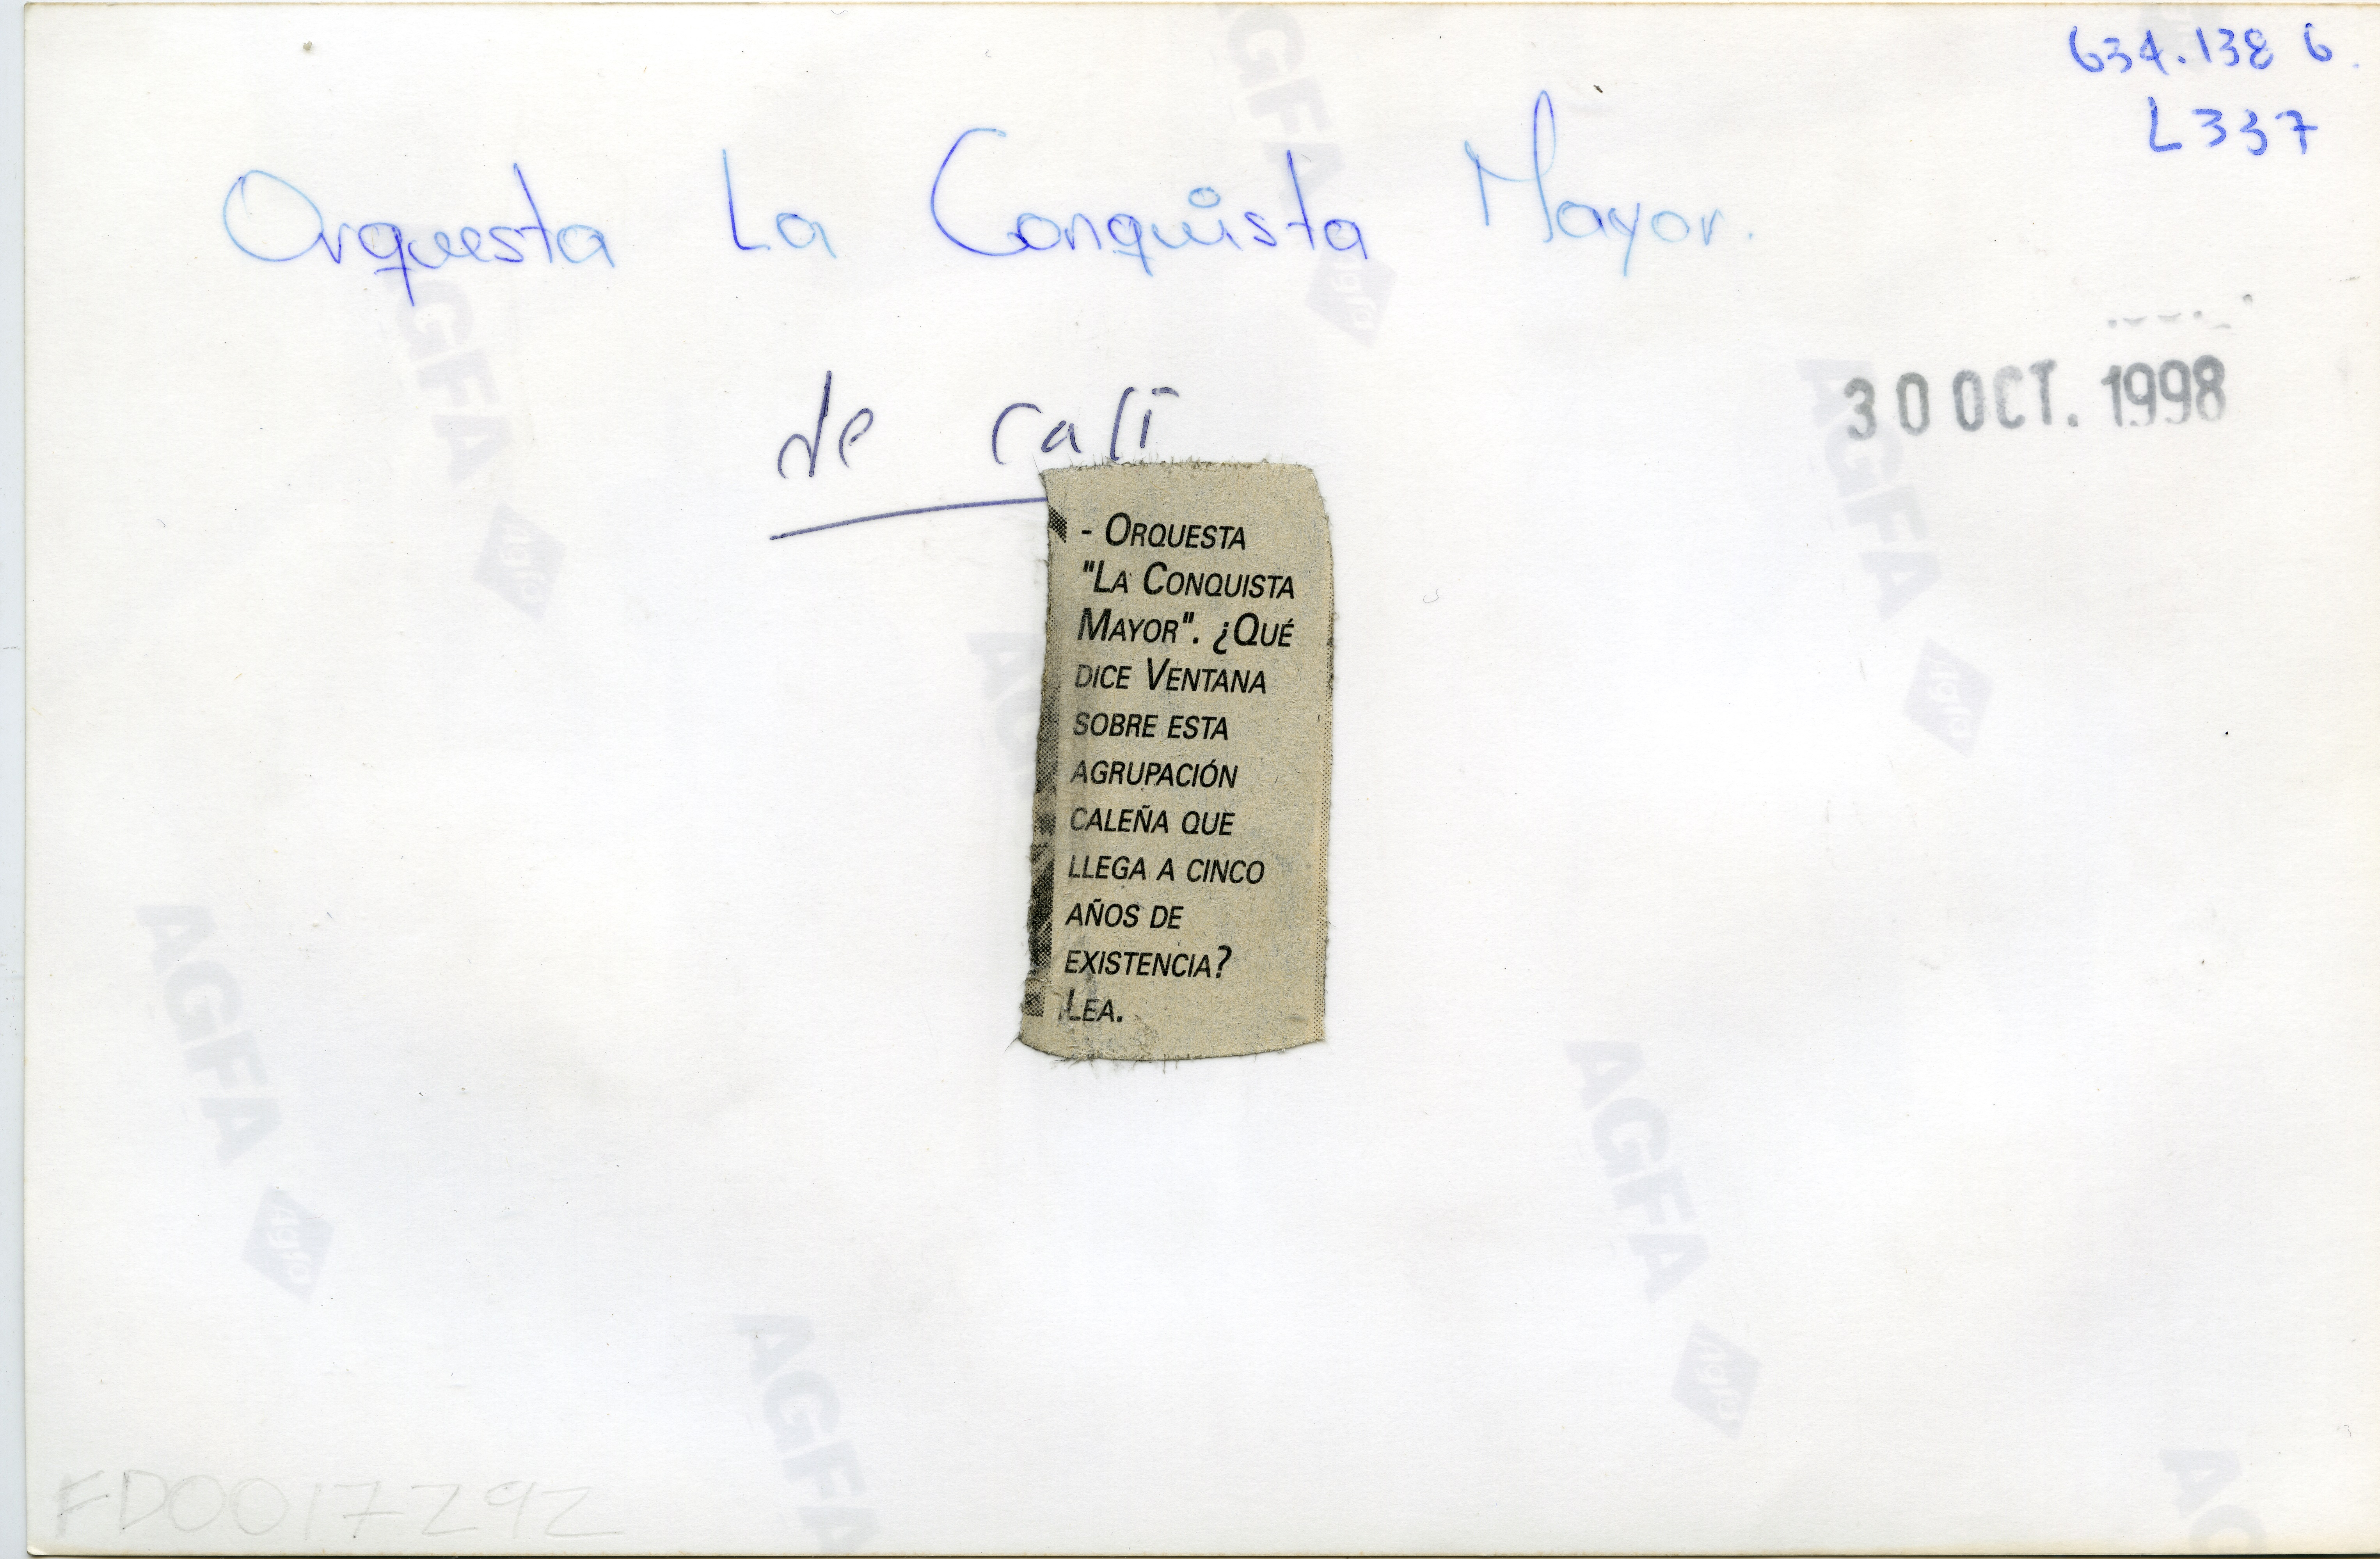 634.138 6.
L337
Orquesta La Conquista Mayor.
30 OCT. 1998
de cali
- ORQUESTA
"LA CONQUISTA
MAYOR". ¿QUÉ
DICE VENTANA
SOBRE ESTA
AGRUPACIÓN
CALEÑA QUE
LLEGA A CINCO
AÑOS DE
EXISTENCIA?
LEA.
FD0017292
AGFA
AGFA
AGFA
AGFA
AGFA
AGFA